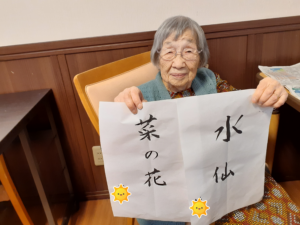 水仙
菜の花